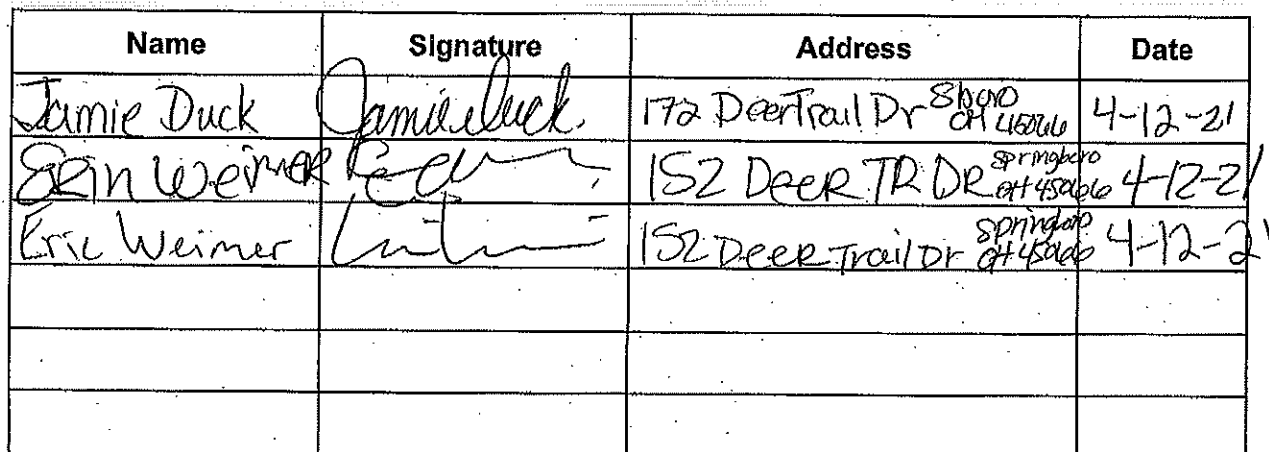 Name Signature Address Date
Jamie Duck Jamie Duck 172 DeerTrail Dr Sboro OH 45066 4-12-21
Erin Weimer 152 Deer TR DR Springboro OH 45066 4-12-21
Eric Weimer 152 Deer Trail Dr Springboro OH 45066 4-12-21